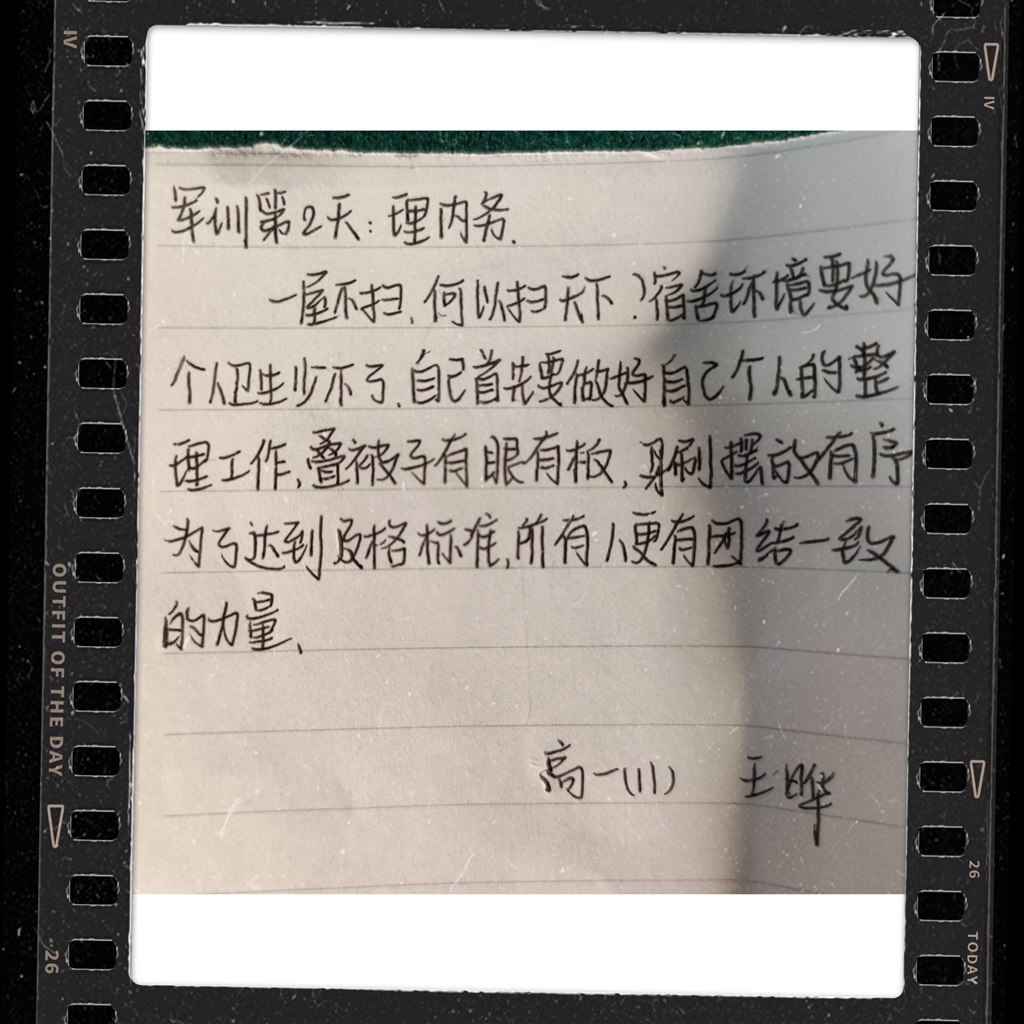 军训第2天:理内务.
一屋不扫,何以扫天下?宿舍环境要好
个人卫生少不了,自己首先要做好自己个人的整
理工作,叠被子有眼有板,牙刷摆放有序
为了达到及格标准,所有人更有团结一致
的力量、
高一(11) 王晔
IV
OUTFIT OF THE DAY
26
IV
26
TODAY